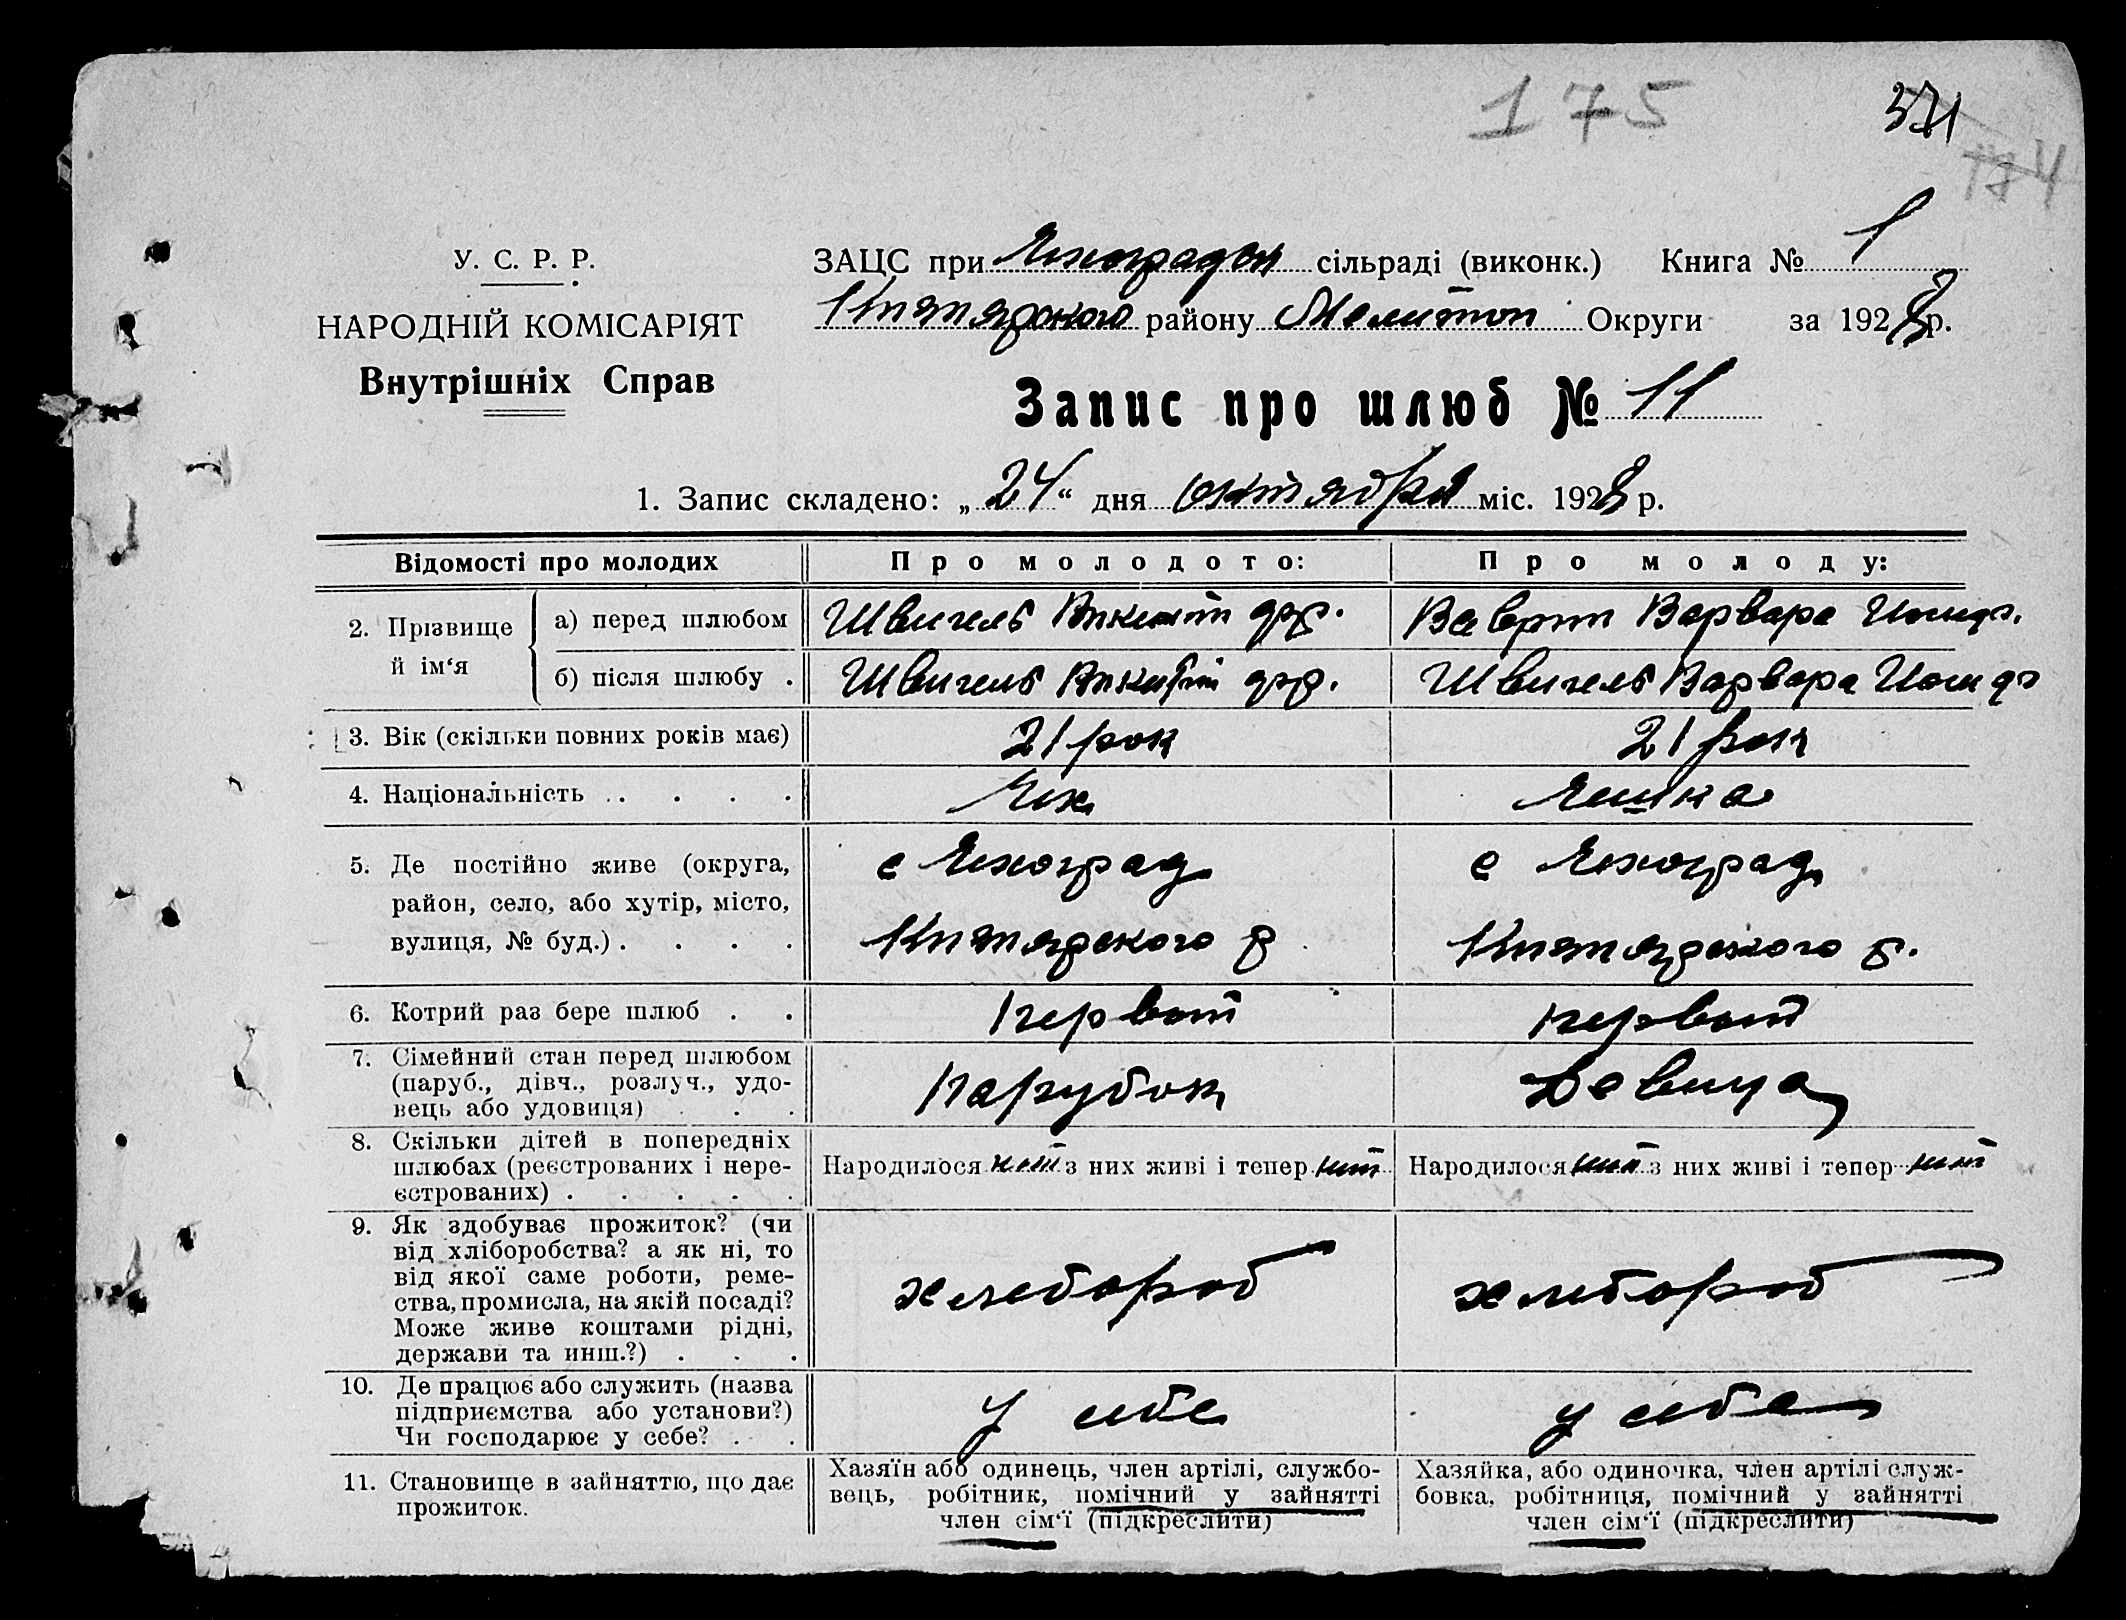 175
371
174
У. С. Р. Р.
НАРОДНІЙ КОМІСАРІЯТ
Внутрішніх Справ
ЗАЦС при Чехоградск сільраді (виконк.) Книга № 1
Кизиярского району Мелитоп Округи за 1928 р.
Запис про шлюб № 11
1. Запис складено: „24“ дня октября міс. 1928 р.
Відомості про молодих
Про молодого:
Про молоду:
2. Прізвище й ім‘я
а) перед шлюбом
Швигель
Варвара
б) після шлюбу .
Швигель
Швигель Варвара
3. Вік (скільки повних років має)
21 рок
21 рок
4. Національність . . . . .
Чех
Чешка
5. Де постійно живе (округа,
район, село, або хутір, місто,
вулиця, № буд.) . . . . .
с Чехоград
с Чехоград
р
р.
6. Котрий раз бере шлюб . .
первий
первий
7. Сімейний стан перед шлюбом
(паруб., дівч., розлуч., удо-
вець або удовиця) . . .
Парубок
Девица
8. Скільки дітей в попередніх
шлюбах (реєстрованих і нере-
єстрованих) . . . . .
Народилося нет з них живі і тепер нет
Народилося нет з них живі і тепер нет
9. Як здобуває прожиток? (чи
від хліборобства? а як ні, то
від якої саме роботи, реме-
ства, промисла, на якій посаді?
Може живе коштами рідні,
держави та инш.?) . . .
хлебороб
хлебороб
10. Де працює або служить (назва
підприємства або установи?)
Чи господарює у себе? . .
у себе
у себе
11. Становище в зайняттю, що дає
прожиток.
Хазяїн або одинець, член артілі, службо-
вець, робітник, помічний у зайнятті
член сім‘ї (підкреслити)
Хазяйка, або одиночка, член артілі служ-
бовка, робітниця, помічний у зайнятті
член сім‘ї (підкреслити)